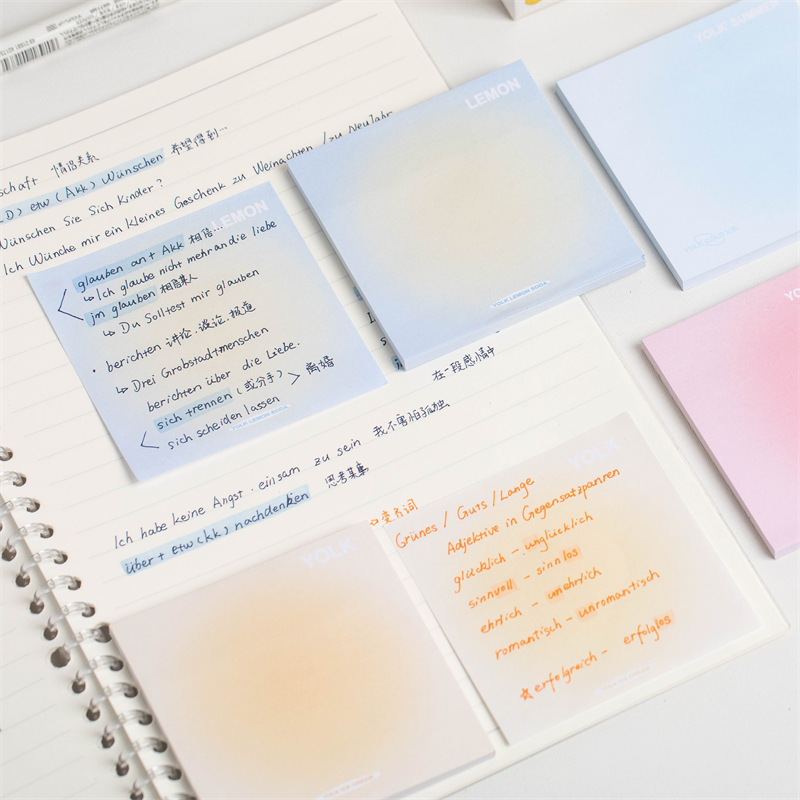 schaft 情侣关系
D) etw (Akk) Wünschen 希望得到...
Wünschen Sie Sich Kinder?
Ich Wünche mir ein kleines Geschenk zu Weinachten / zu Neujahr
LEMON
glauben an + Akk 相信...
↳ Ich glaube nicht mehr an die liebe
jm glauben 相信某人
↳ Du Solltest mir glauben
• berichten 讲论.谈论.报道
↳ Drei Grobstadtmenschen
berichten über die Liebe.
sich trennen (或分手) > 离婚
< sich scheiden lassen
YOLK LEMON SODA
LEMON
YOLK LEMON SODA
YOLK SUMMER
YO
在一段感情中
Ich habe keine Angst. einsam zu sein 我不害怕孤独
über + etw (kk) nachdenken 思考某事
YOLK
YOLK
变名词
Grünes / Guts / Lange
Adjektive in Gegensatzpanren
glücklich - unglücklich
sinnvoll - sinnlos
ehrlich - unehrlich
romantisch - unromantisch
☆ erfolgreich - erfolglos